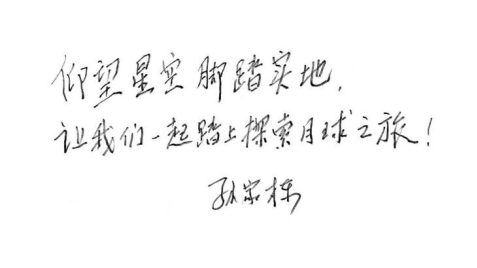 仰望星空脚踏实地,
让我们一起踏上探索月球之旅!
孙家栋